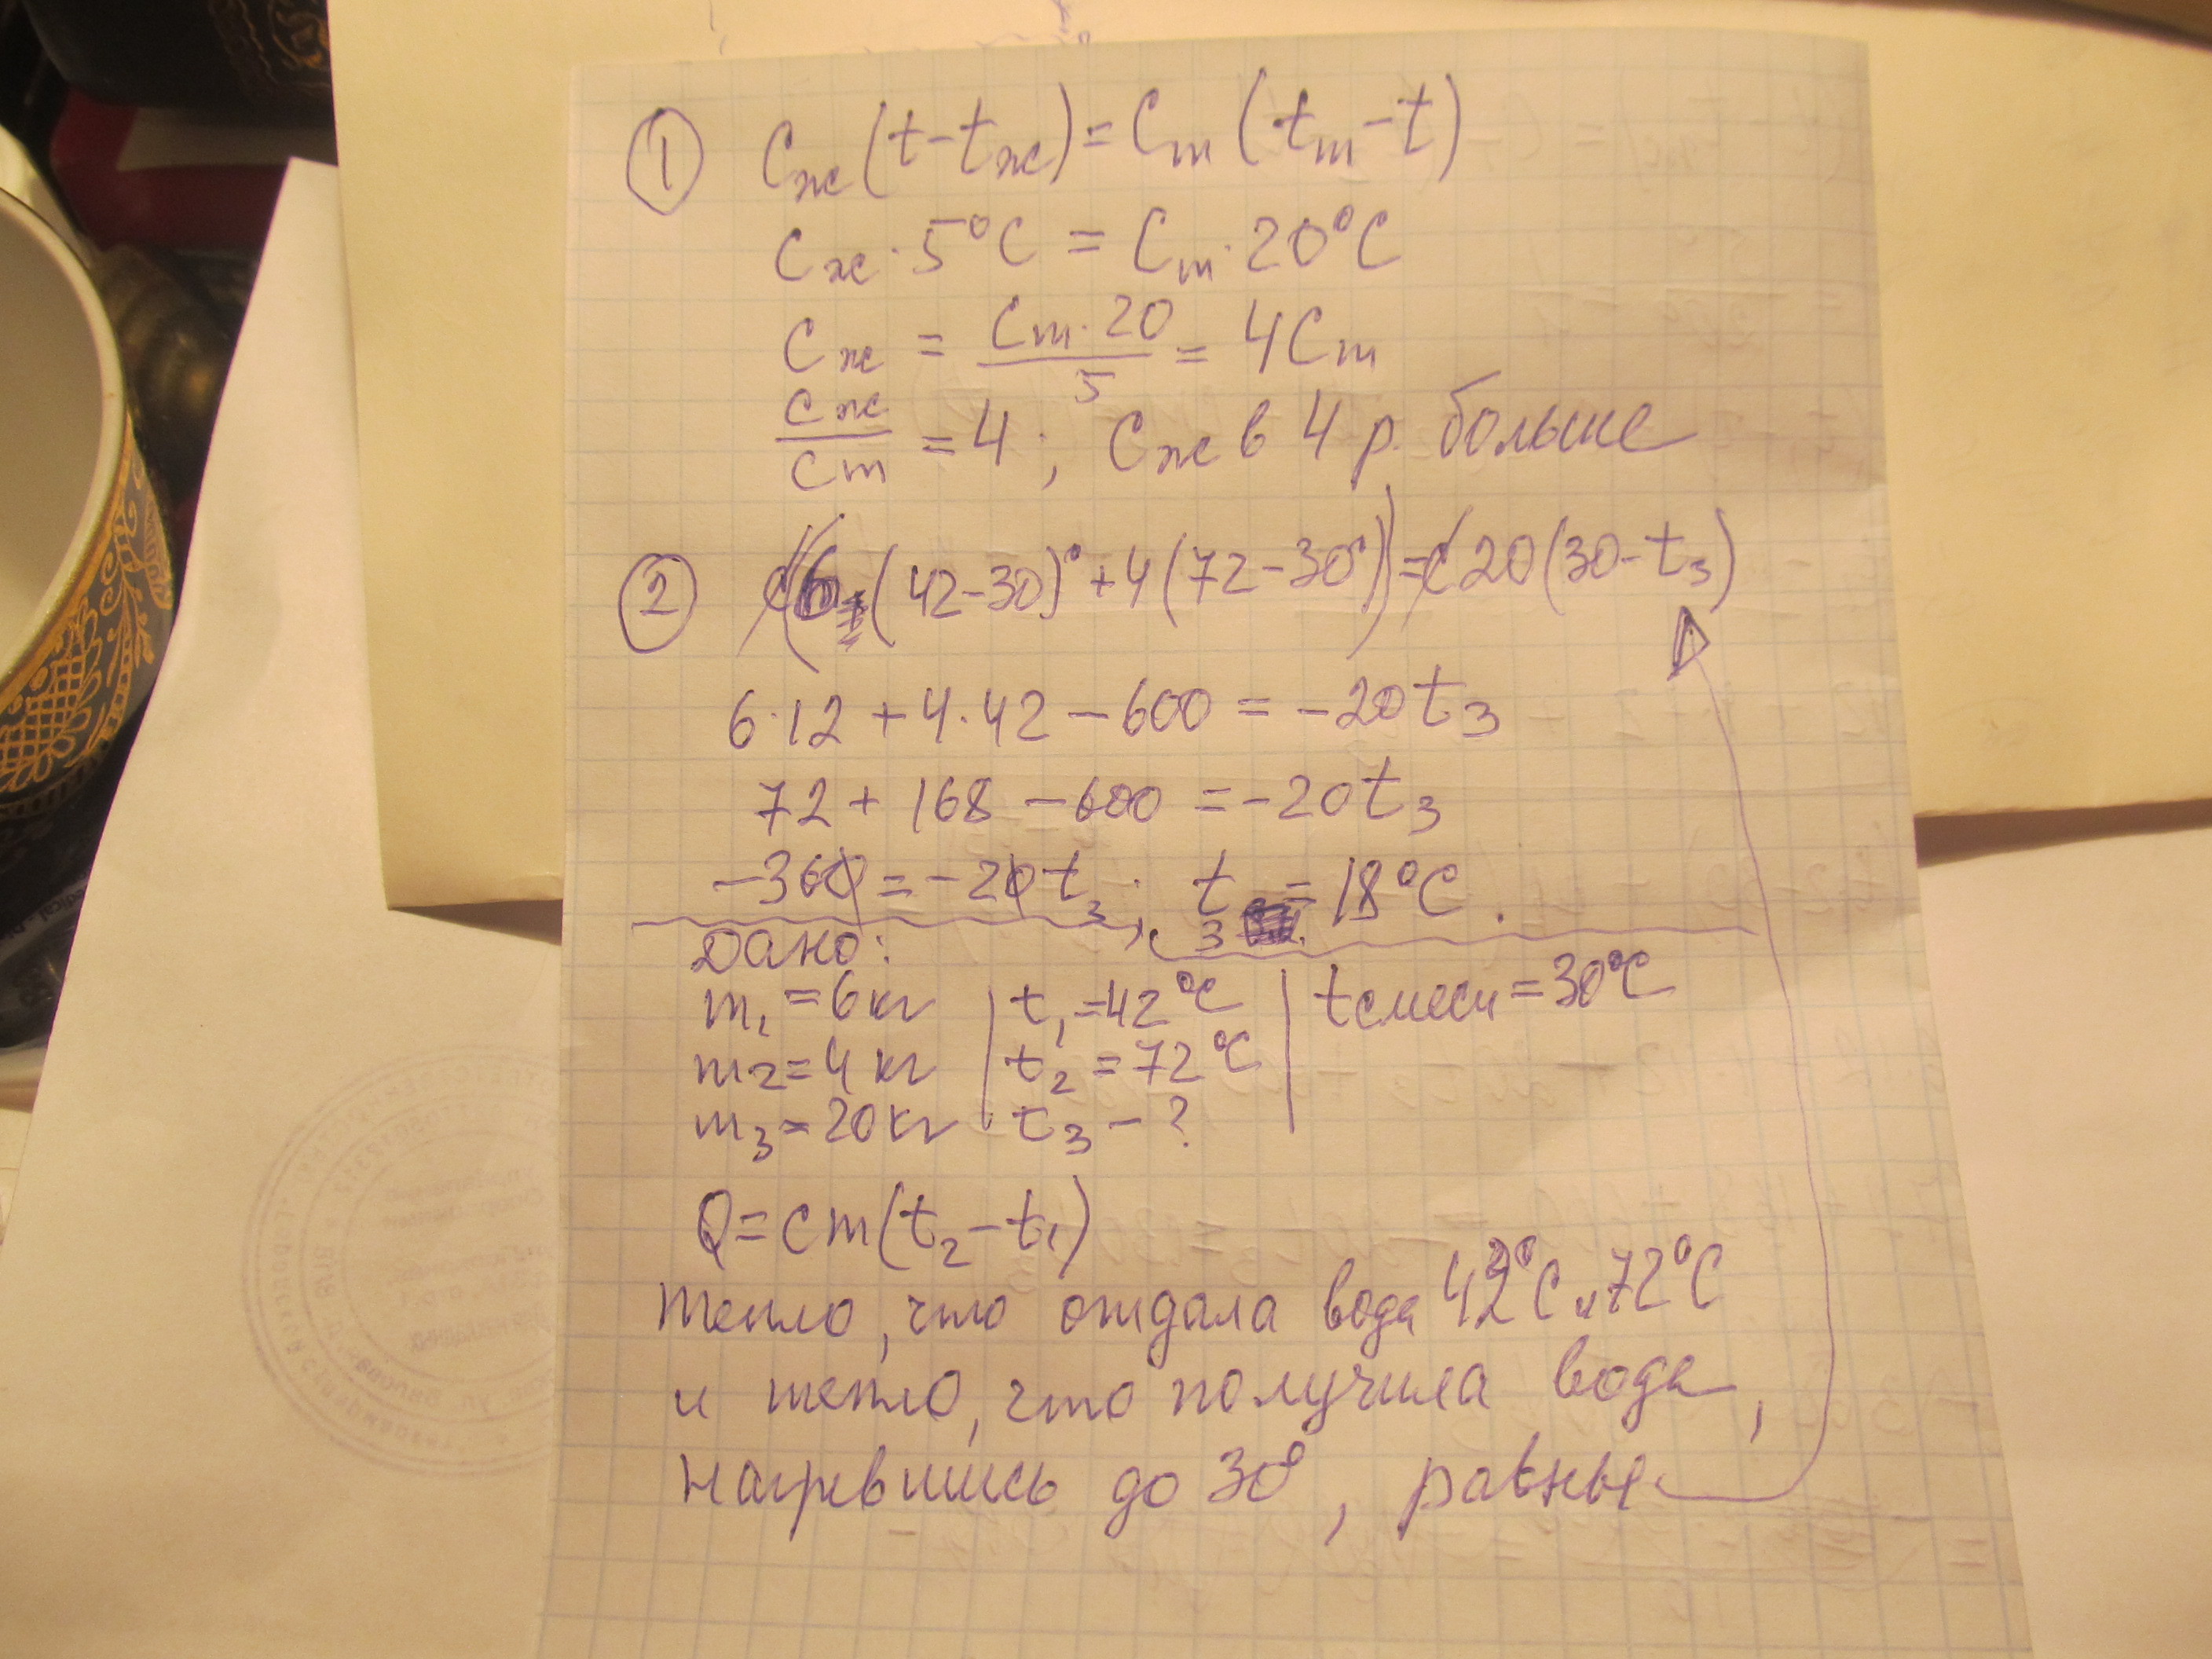 ① Cж(t-tж)=Cт(tт-t)
Cж·5°C = Cт·20°C
Cж = Cт·20/5 = 4Cт
Cж/Cт = 4; Cж в 4 р. больше
② c(6(42-30)°+4(72-30°))=c20(30-t₃)
6·12+4·42-600=-20t₃
72+168-600=-20t₃
-360=-20t₃; t₃=18°C.
Дано:
m₁=6кг | t₁=42°C | tсмеси=30°C
m₂=4кг | t₂=72°C
m₃=20кг | t₃-?
Q=cm(t₂-t₁)
Тепло, что отдала вода 42°C и 72°C
и тепло, что получила вода,
нагревшись до 30°, равны